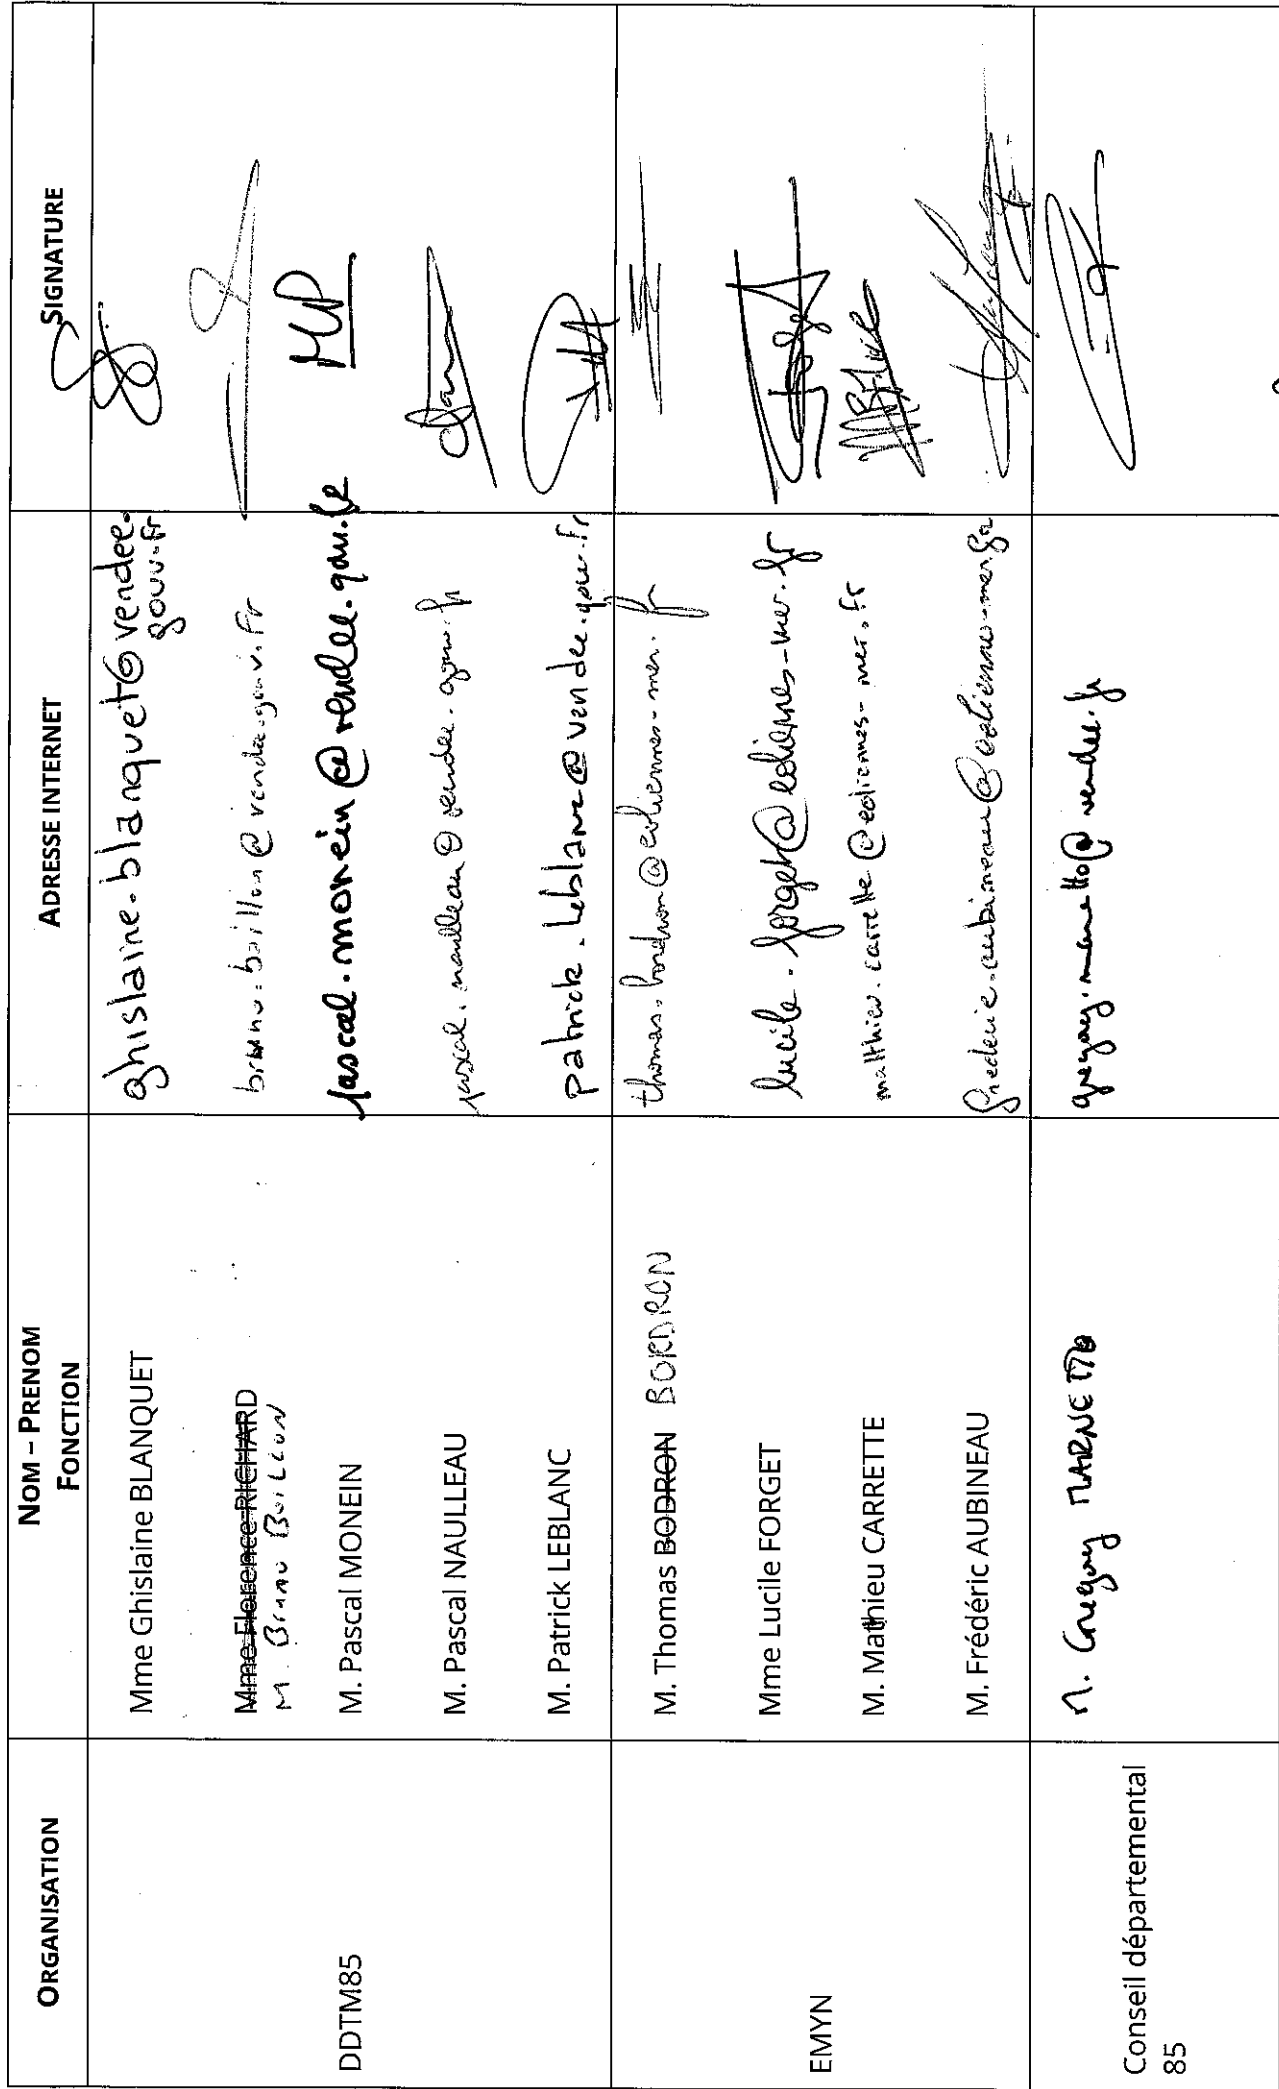 ORGANISATION
NOM – PRENOM
FONCTION
ADRESSE INTERNET
SIGNATURE
DDTM85
Mme Ghislaine BLANQUET
ghislaine.blanquet@vendee.
gouv.fr
Mme Florence RICHARD
M. Bruno BAILLON
bruno.baillon@vendee.gouv.fr
M. Pascal MONEIN
pascal.monein@vendee.gouv.fr
MP
M. Pascal NAULLEAU
pascal.naulleau@vendee.gouv.fr
M. Patrick LEBLANC
patrick.leblanc@vendee.gouv.fr
EMYN
M. Thomas BODRON BORDRON
thomas.bordron@eoliennes-mer.fr
Mme Lucile FORGET
lucile.forget@eoliennes-mer.fr
M. Mathieu CARRETTE
matthieu.carrette@eoliennes-mer.fr
M. Frédéric AUBINEAU
frederic.aubineau@eoliennes-mer.fr
Conseil départemental
85
M. Gregory MARNETTO
gregory.marnetto@vendee.fr